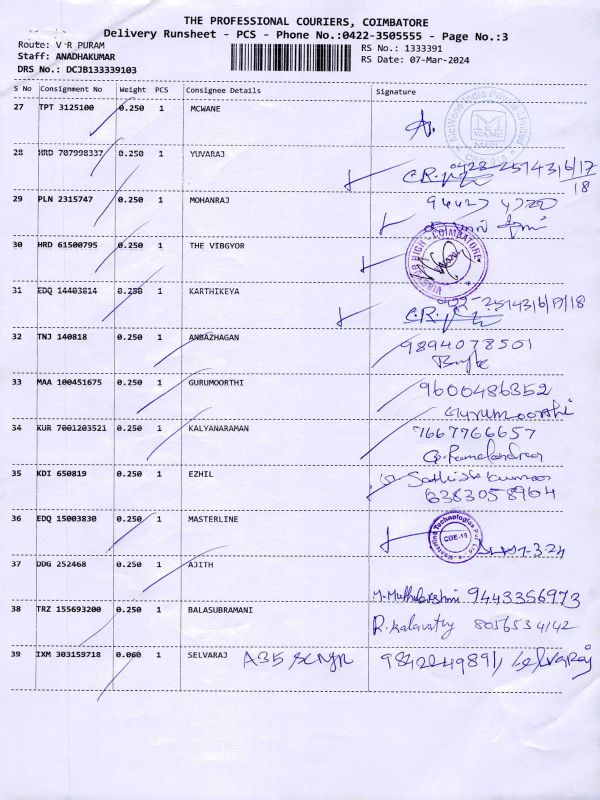 THE PROFESSIONAL COURIERS, COIMBATORE
Delivery Runsheet - PCS - Phone No.:0422-3505555 - Page No.:3
Route: V R PURAM
Staff: ANADHAKUMAR
DRS No.: DCJB133339103
RS No.: 1333391
RS Date: 07-Mar-2024
S No Consignment No Weight PCS Consignee Details Signature
27 TPT 3125100 0.250 1 MCWANE
28 HRD 707998337 0.250 1 YUVARAJ
C.R. 0422-2514316/17
/18
29 PLN 2315747 0.250 1 MOHANRAJ
30 HRD 61500795 0.250 1 THE VIBGYOR
VIBGYOR HIGH - COIMBATORE
31 EDQ 14403814 0.250 1 KARTHIKEYA
C.R. 0422-2514316/17/18
32 TNJ 140818 0.250 1 ANBAZHAGAN 9894078501
33 MAA 100451675 0.250 1 GURUMOORTHI 9600486352
Gurumoorthi
34 KUR 7001203521 0.250 1 KALYANARAMAN 7667766657
35 KDI 650819 0.250 1 EZHIL Sathish kumar
6383058964
36 EDQ 15003830 0.250 1 MASTERLINE
CBE-15
37 DDG 252468 0.250 1 AJITH
M.Muthulakshmi 9443356973
38 TRZ 155693200 0.250 1 BALASUBRAMANI R.Kalavathy 8056534142
39 IXM 303159718 0.060 1 SELVARAJ A35 Selvaraj